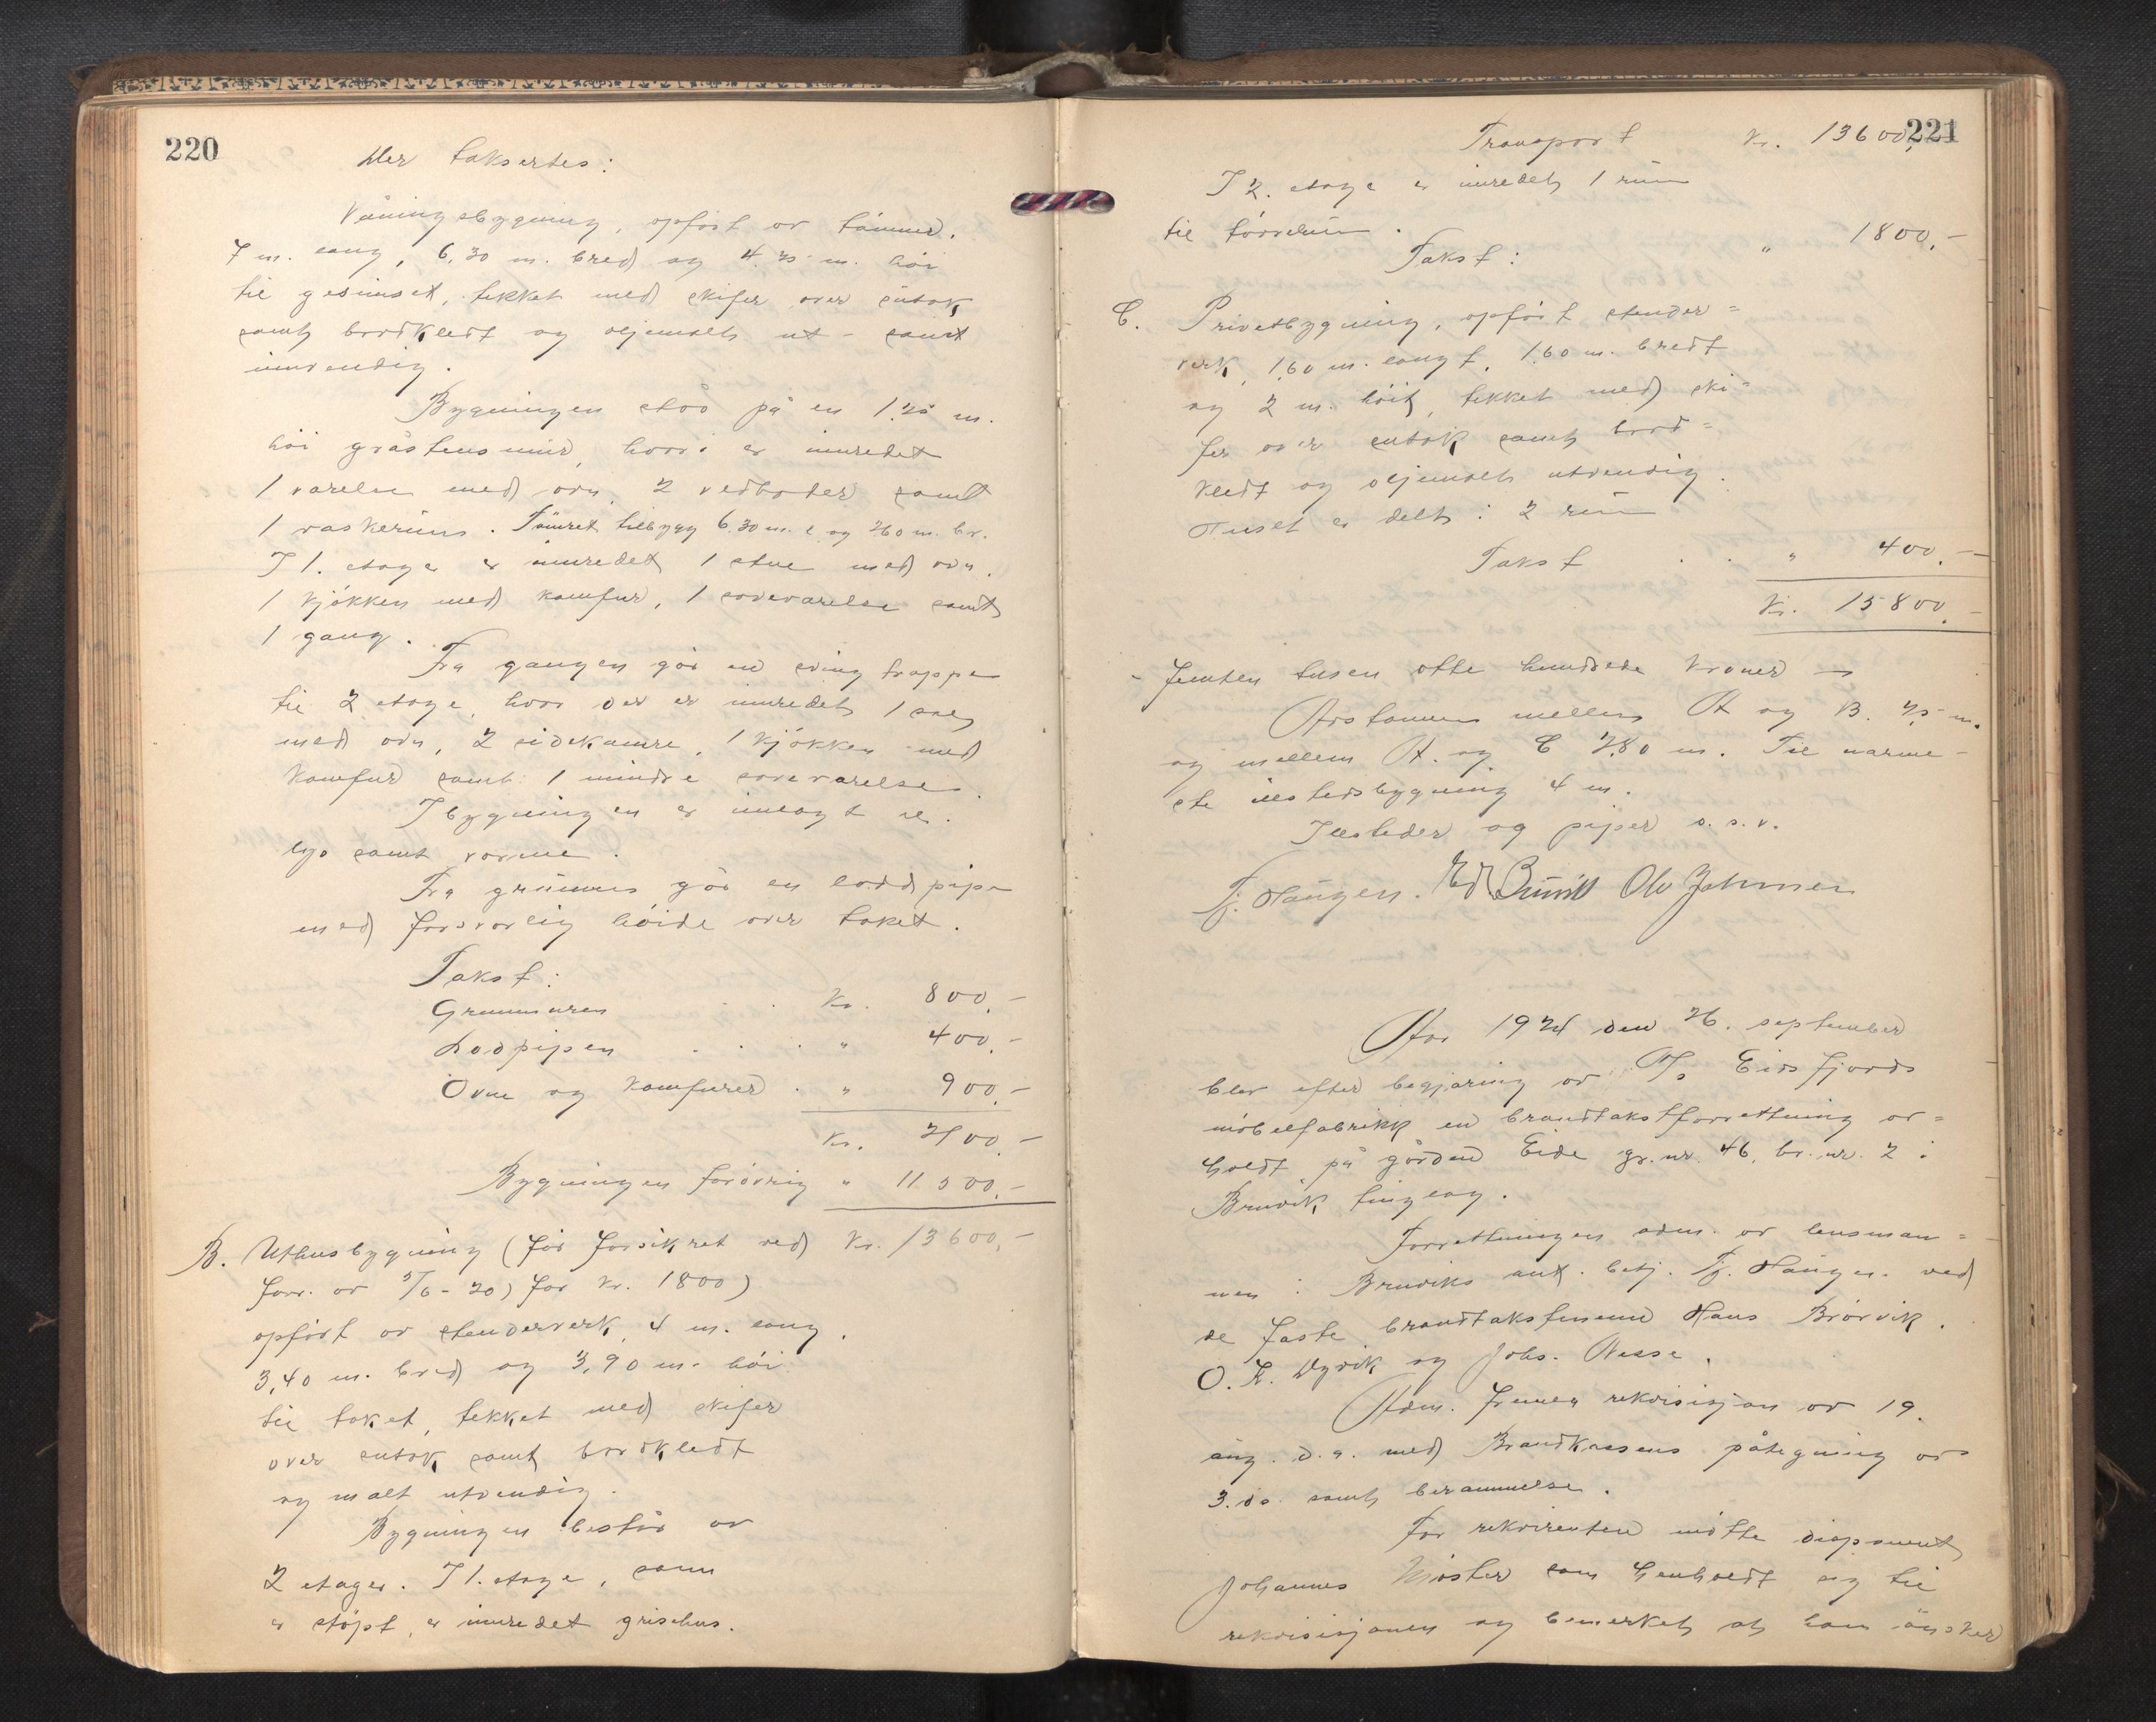 220
Der taksertes:
Våningsbygning, opført av tømmer,
7 m. lang, 6,30 m. bred og 4,75 m. høi
til gesimset, tekket med skifer over sutak
samt bordkledt og oljemalt ut- samt
innvendig.
Bygningen står på en 1,25 m.
høi gråstensmur, hvori er innredet
1 værelse med ovn, 2 vedboder samt
1 vaskerum. Tømret tilbygg 6.30 m. l. og 260 m. br.
I 1. etage er innredet 1 stue med ovn,
1 kjøkken med komfur, 1 soveværelse samt
1 gang.
Fra gangen går en sving trappe
til 2 etage, hvor der er innredet 1 sal
med ovn, 2 sidekamre, 1 kjøkken med
komfur samt 1 mindre soveværelse.
I bygningen er innlagt el.
lys samt varme.
Fra grunnen går en loddpipe
med forsvarlig høide over taket.
Takst:
Grunnmuren . . Kr. 800,-
Lodpipen . . . " 400,-
Ovne og komfurer . " 900,-
Kr. 2100,-
Bygningen forøvrig " 11500,-
B. Uthusbygning (før forsikret ved Kr. 13600,-
forr. av 5/6-20) for kr. 1800)
opført av stenderverk, 4 m. lang,
3,40 m. bred og 3,90 m. høi
til taket, tekket med skifer
over sutak samt bordkledt
og malt utvendig.
Bygningen består av
2 etager. I 1. etage, som
er støpt, er innredet grisehus.
221
Transport Kr. 13600,-
I 2. etage er innredet 1 rum
til tørrelum.
Takst: " 1800,-
C. Privetbygning, opført stender=
verk, 1,60 m. langt, 1.60 m. bredt
og 2 m. høit, tekket med ski=
fer over sutak samt bord=
kledt og oljemalt utvendig.
Huset er delt i 2 rum
Takst . . " 400,-
Kr. 15800,-
- Femten tusen otte hundrede kroner -
Avstanden mellem A og B. 75 m.
og mellem A. og C 7,80 m. Til nærme-
ste ildstedsbygning 4 m.
Ildsteder og piper o.s.v.
Tj. Haugen. Ed Olv Johnsen
År 1924 den 26. september
blev efter begjæring av A/s Eidsfjords
møbelfabrikk en brandtakstforretning av=
holdt på gården Eide gr.nr. 46, br.nr. 2 i
Bruvik tinglag.
Forretningen adm. av lensman=
nen i Bruviks aut. betj. Tj. Haugen ved
de faste brandtakstmenn Hans Brørvik,
O. K. Dyvik og Johs. Nesse.
Adm. fremla rekvisisjon av 19.
aug. d.å. med Brandkassens påtegning av
3. ds. samt berammelse.
For rekvirenten møtte disponent
Johannes Møster som henholdt sig til
rekvisisjonen og bemerket at han ønsker